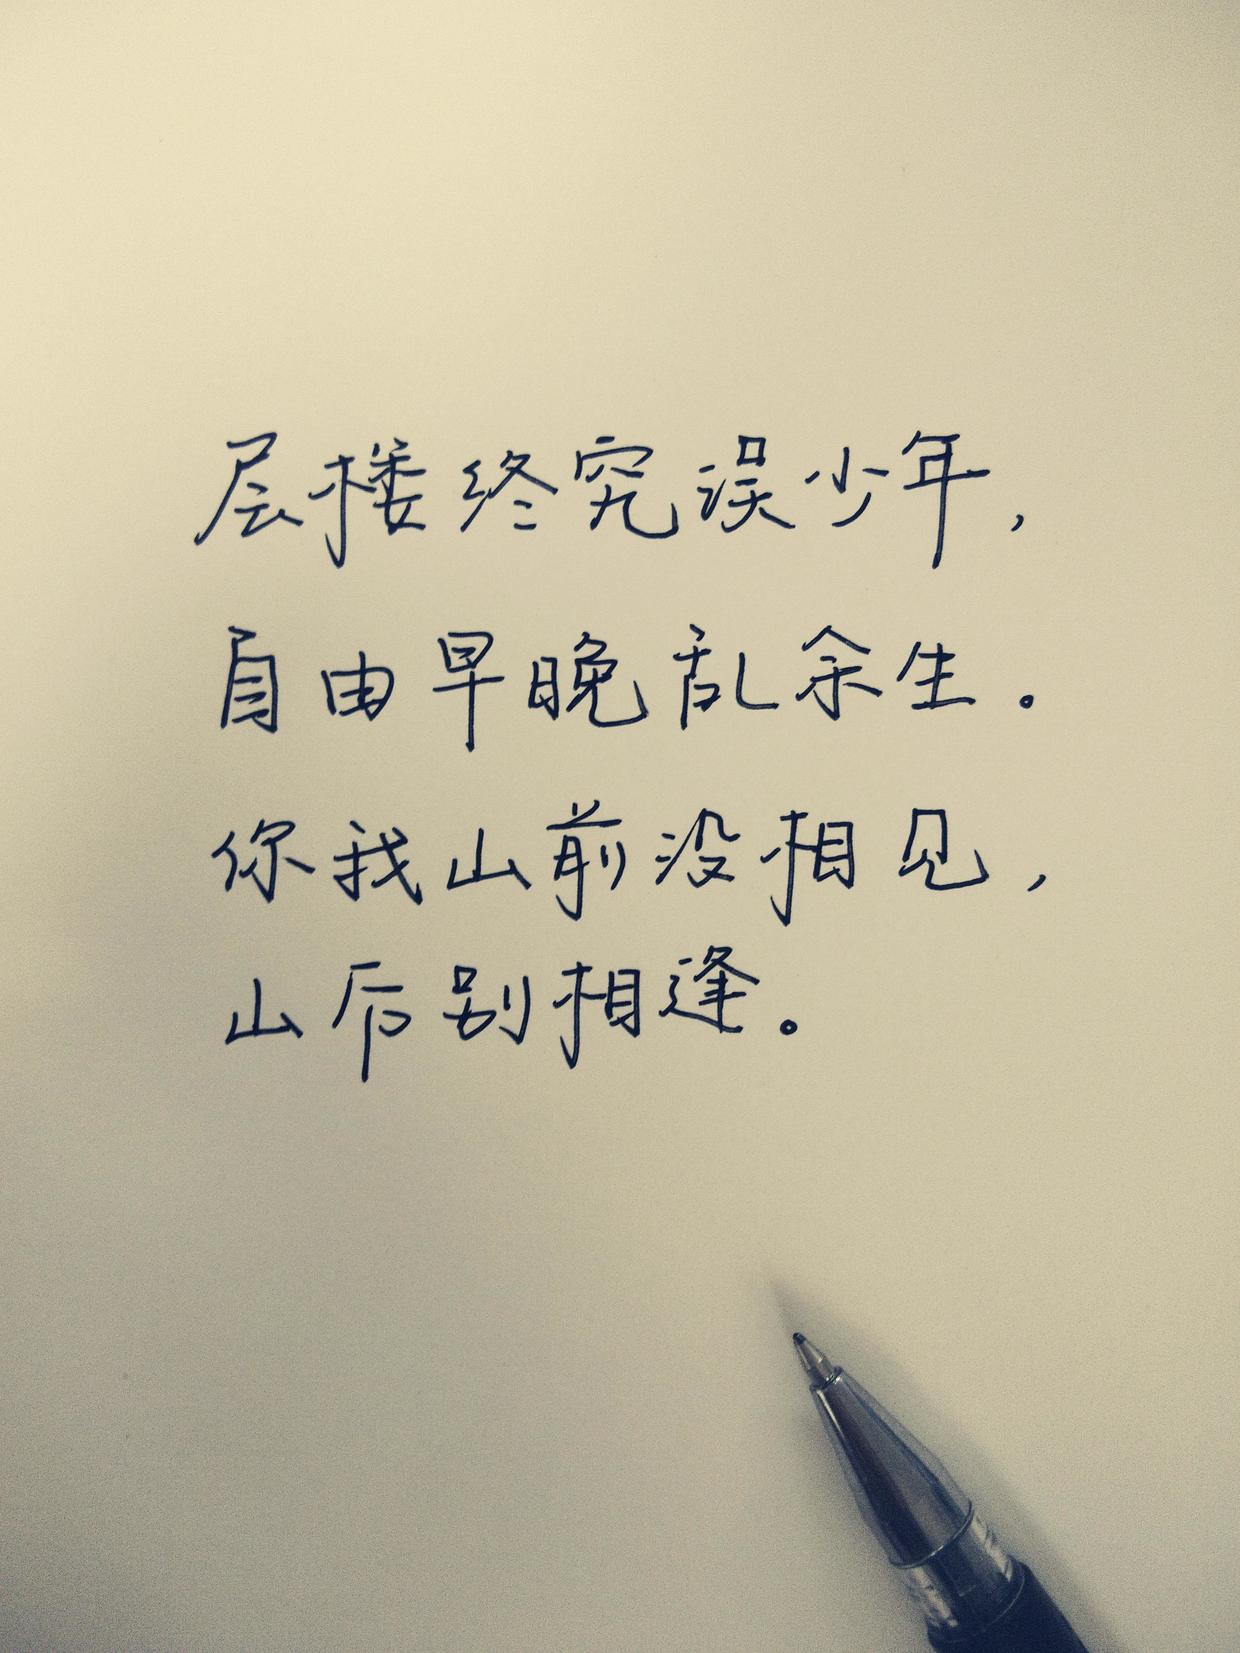 层楼终究误少年，
自由早晚乱余生。
你我山前没相见，
山后别相逢。